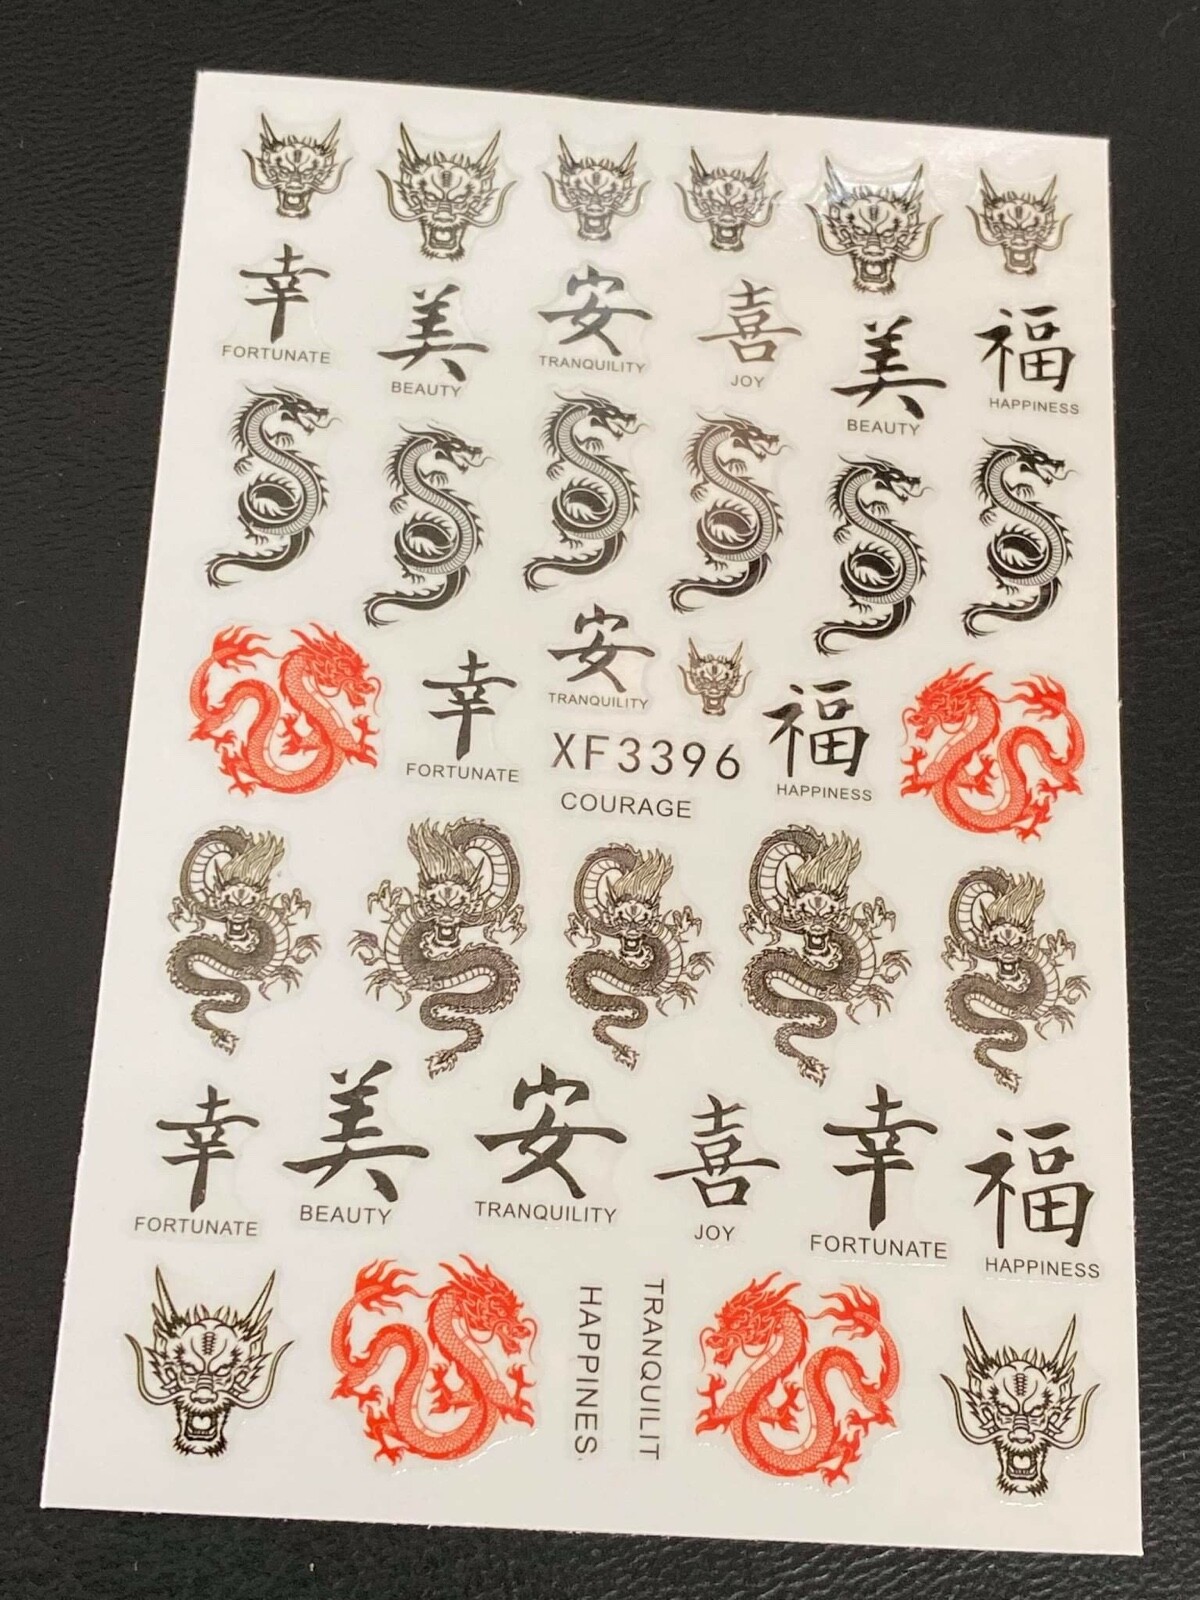 幸
FORTUNATE
美
BEAUTY
安
TRANQUILITY
喜
JOY
美
BEAUTY
福
HAPPINESS
幸
FORTUNATE
安
TRANQUILITY
福
HAPPINESS
XF3396
COURAGE
幸
FORTUNATE
美
BEAUTY
安
TRANQUILITY
喜
JOY
幸
FORTUNATE
福
HAPPINESS
HAPPINES
TRANQUILIT